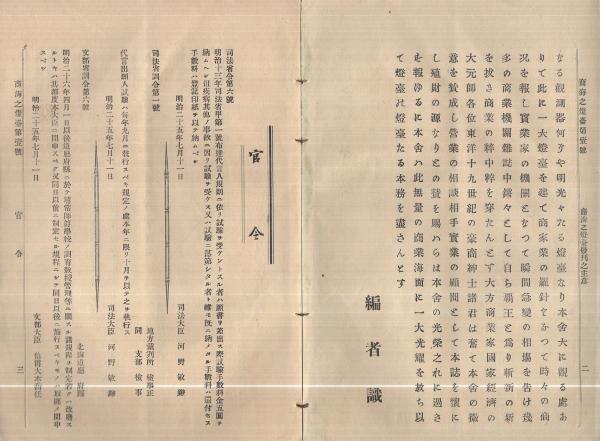 商海之燈臺第壹號
商海之燈臺發刊之主意
二
なる觀測器何ぞや明光々たる燈臺なり本舎大に觀る處あ
りて此に一大燈臺を建て商家業の羅針となつて時々の商
況を報し實業家の機關となつて瞬間急變の相塲を告け幾
多の商業機關雜誌中鏘々として自ら覇王と爲り斬新の新
を拔き商業の粹中粹を穿たんとす大方商業家國家經濟の
大元師各位東洋十九世紀の豪商紳士諸君は奮て本舎の微
意を賛成し營業の相談相手實業の顧問として本誌を懷に
し殖財の源なりとの賛を賜はらは本舎の光榮之れに過さ
を報ゆるに本舎は此無量の商業海面に一大光耀を放ち以
て燈臺は燈臺たる本務を盡さんとす
編者識
官令
司法省令第六號
明治十三年司法省甲第一號布達代言人規則ニ依リ試驗ヲ受ケントスル者ハ願書ヲ差出ス際試驗手數料金五圓ヲ
納ムヘシ但疾病其他ノ事故ニ因リ試驗ヲ受ケス又ハ試驗ニ落第シタル者ト雖モ既ニ納メタル手數料ハ還付セス
手數料ハ登記印紙ヲ以テ納ムヘシ
明治二十五年七月十一日
司法大臣 河野敏鎌
司法省訓令第一號
地方裁判所 檢事正
同 支部 檢事
代言出願人試驗ハ每年九月ニ發行スヘキ規定ノ處本年ニ限リ十月ヲ以テ之ヲ執行ス
明治二十五年七月十一日
司法大臣 河野敏鎌
文部省訓令第六號
北海道廳 府縣
明治二十六年四月一日以後道廳府縣ニ於テ尋常師範學校ノ
明治二十五年七月十一日
文部大臣 伯爵大木喬任
商海之燈臺第壹號
官令
三